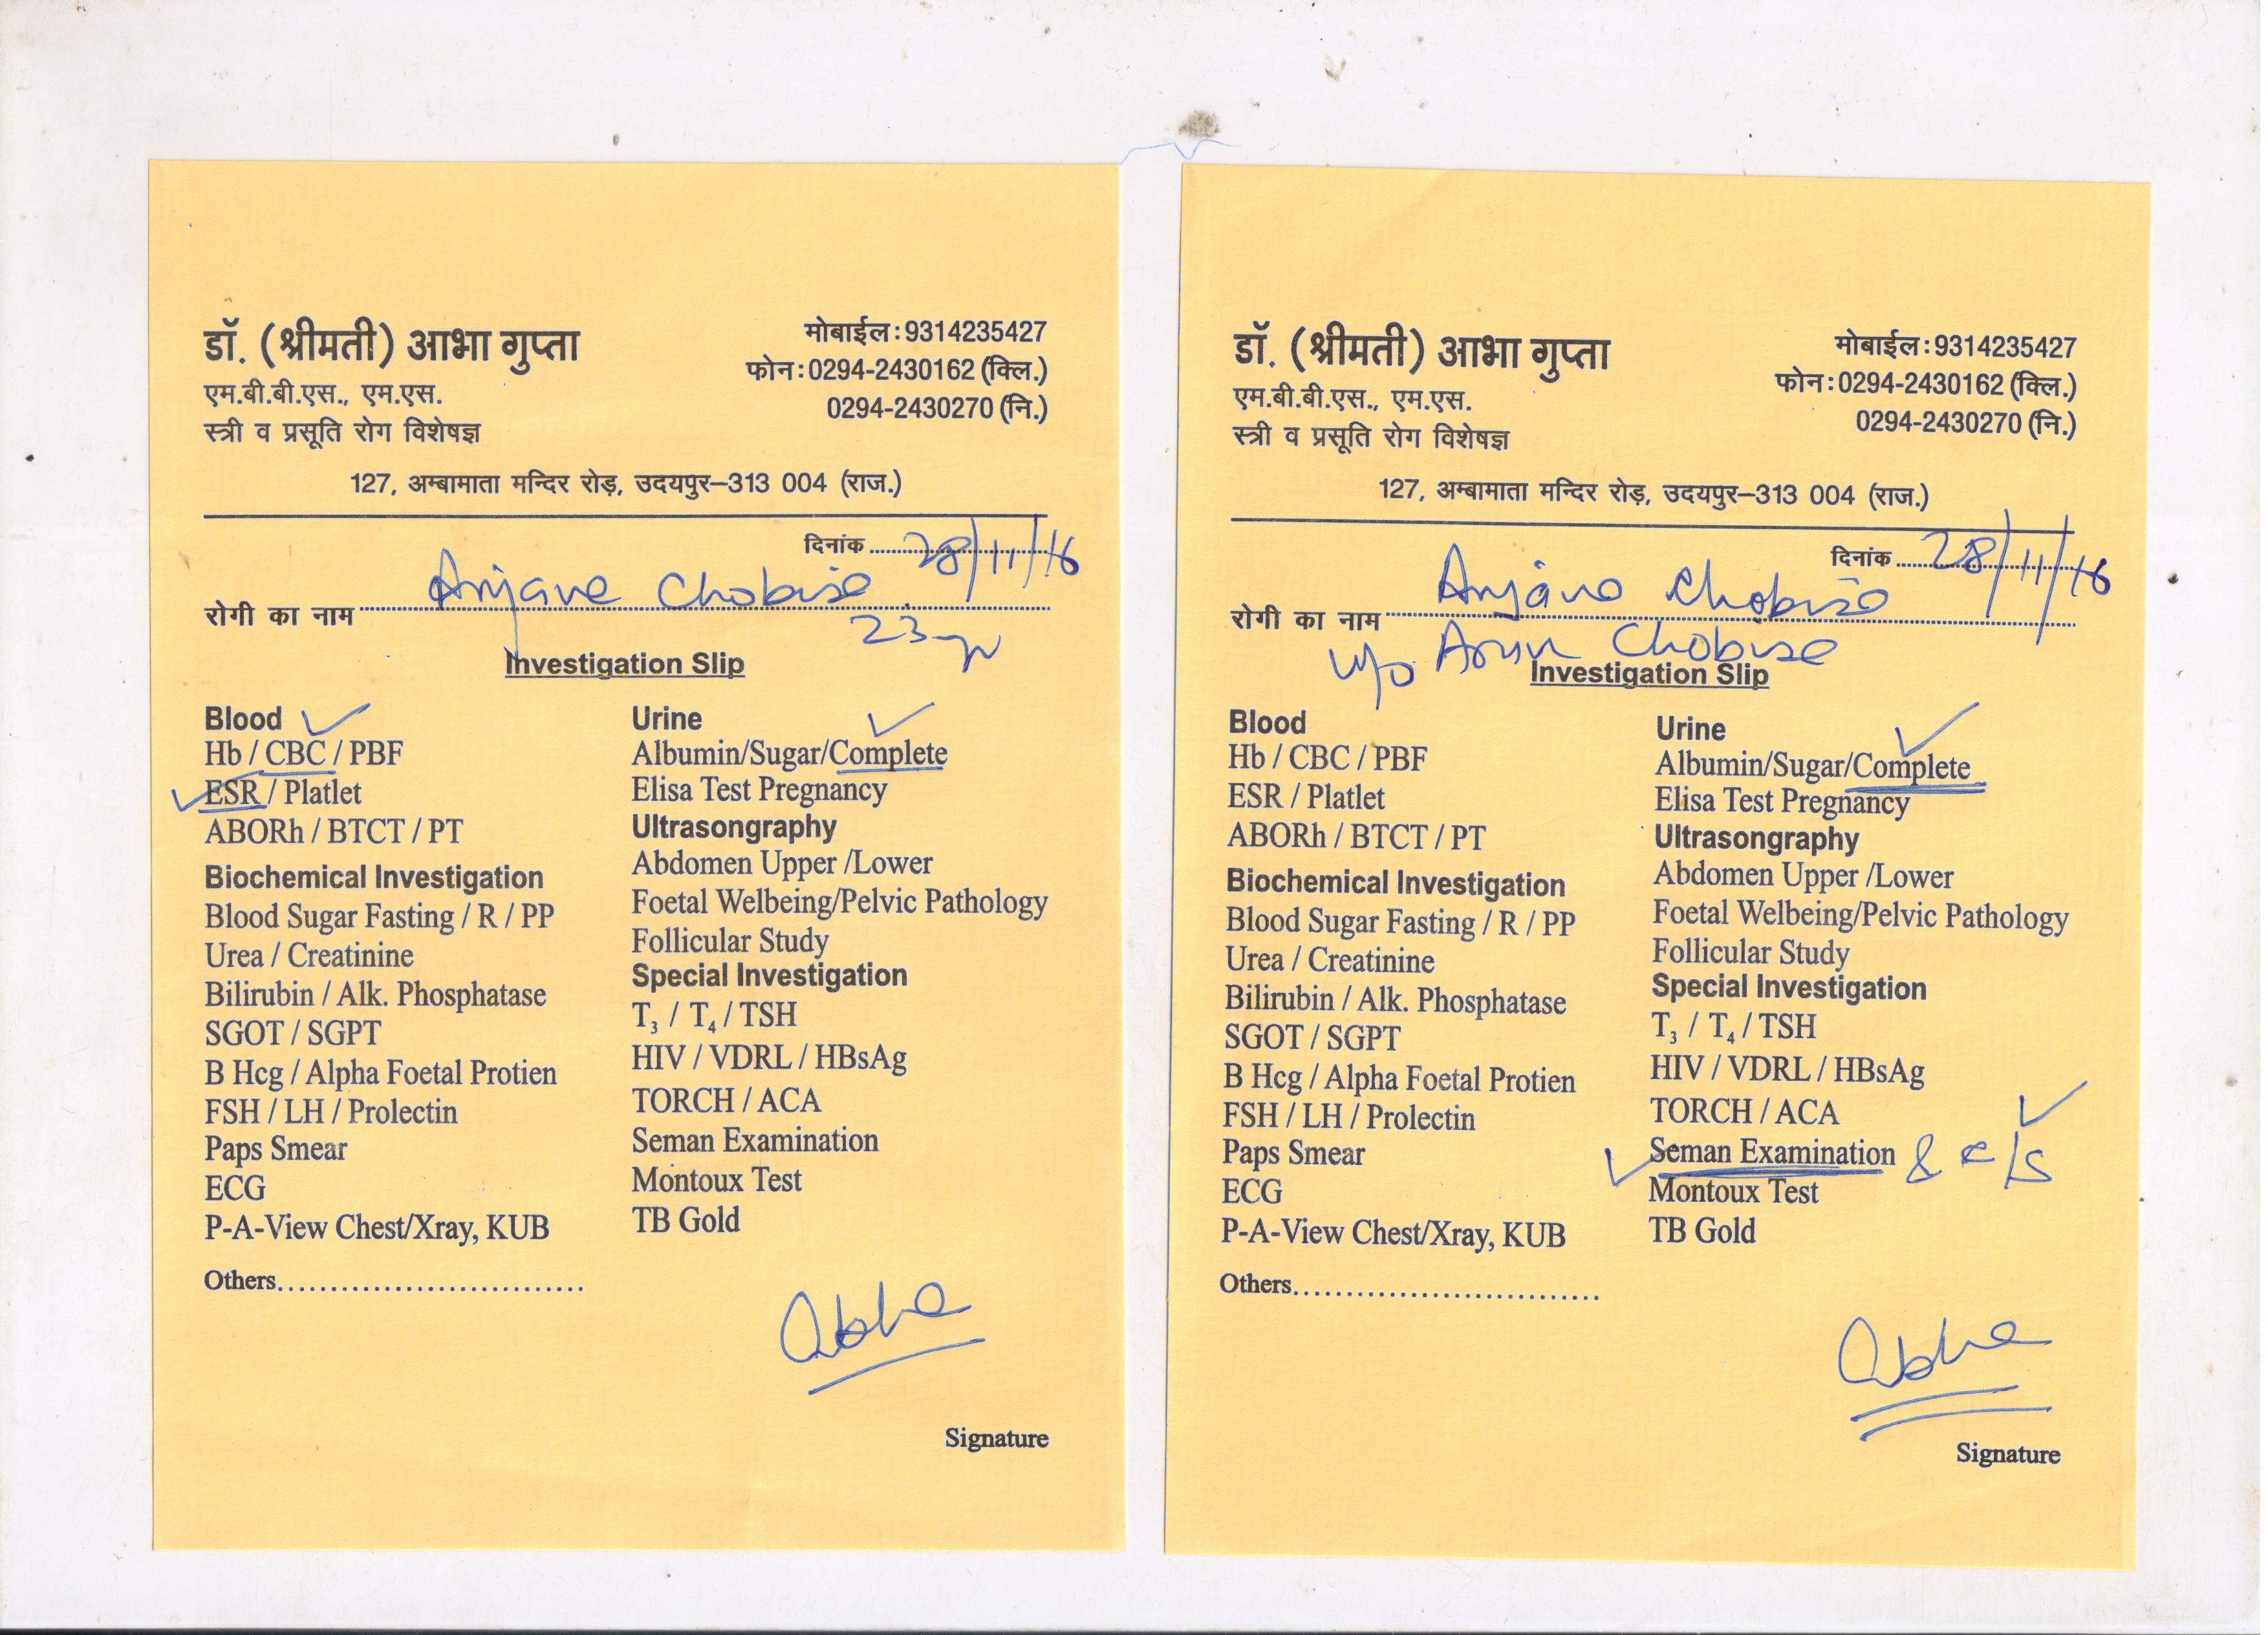 डॉ. (श्रीमती) आभा गुप्ता
एम.बी.बी.एस., एम.एस.
स्त्री व प्रसूति रोग विशेषज्ञ
मोबाईल : 9314235427
फोन : 0294-2430162 (क्लि.)
0294-2430270 (नि.)
127, अम्बामाता मन्दिर रोड़, उदयपुर–313 004 (राज.)
दिनांक 28/11/16
रोगी का नाम Anjane Chobise
23 yr
Investigation Slip
Blood
Hb / CBC / PBF
ESR / Platlet
ABORh / BTCT / PT
Biochemical Investigation
Blood Sugar Fasting / R / PP
Urea / Creatinine
Bilirubin / Alk. Phosphatase
SGOT / SGPT
B Hcg / Alpha Foetal Protien
FSH / LH / Prolectin
Paps Smear
ECG
P-A-View Chest/Xray, KUB
Others..............................
Urine
Albumin/Sugar/Complete
Elisa Test Pregnancy
Ultrasongraphy
Abdomen Upper /Lower
Foetal Welbeing/Pelvic Pathology
Follicular Study
Special Investigation
T₃ / T₄ / TSH
HIV / VDRL / HBsAg
TORCH / ACA
Seman Examination
Montoux Test
TB Gold
Abha
Signature
डॉ. (श्रीमती) आभा गुप्ता
एम.बी.बी.एस., एम.एस.
स्त्री व प्रसूति रोग विशेषज्ञ
मोबाईल : 9314235427
फोन : 0294-2430162 (क्लि.)
0294-2430270 (नि.)
127, अम्बामाता मन्दिर रोड़, उदयपुर–313 004 (राज.)
दिनांक 28/11/16
रोगी का नाम Anjana Chobise
w/o Arun Chobise
Investigation Slip
Blood
Hb / CBC / PBF
ESR / Platlet
ABORh / BTCT / PT
Biochemical Investigation
Blood Sugar Fasting / R / PP
Urea / Creatinine
Bilirubin / Alk. Phosphatase
SGOT / SGPT
B Hcg / Alpha Foetal Protien
FSH / LH / Prolectin
Paps Smear
ECG
P-A-View Chest/Xray, KUB
Others..............................
Urine
Albumin/Sugar/Complete
Elisa Test Pregnancy
Ultrasongraphy
Abdomen Upper /Lower
Foetal Welbeing/Pelvic Pathology
Follicular Study
Special Investigation
T₃ / T₄ / TSH
HIV / VDRL / HBsAg
TORCH / ACA
Seman Examination & c/s
Montoux Test
TB Gold
Abha
Signature